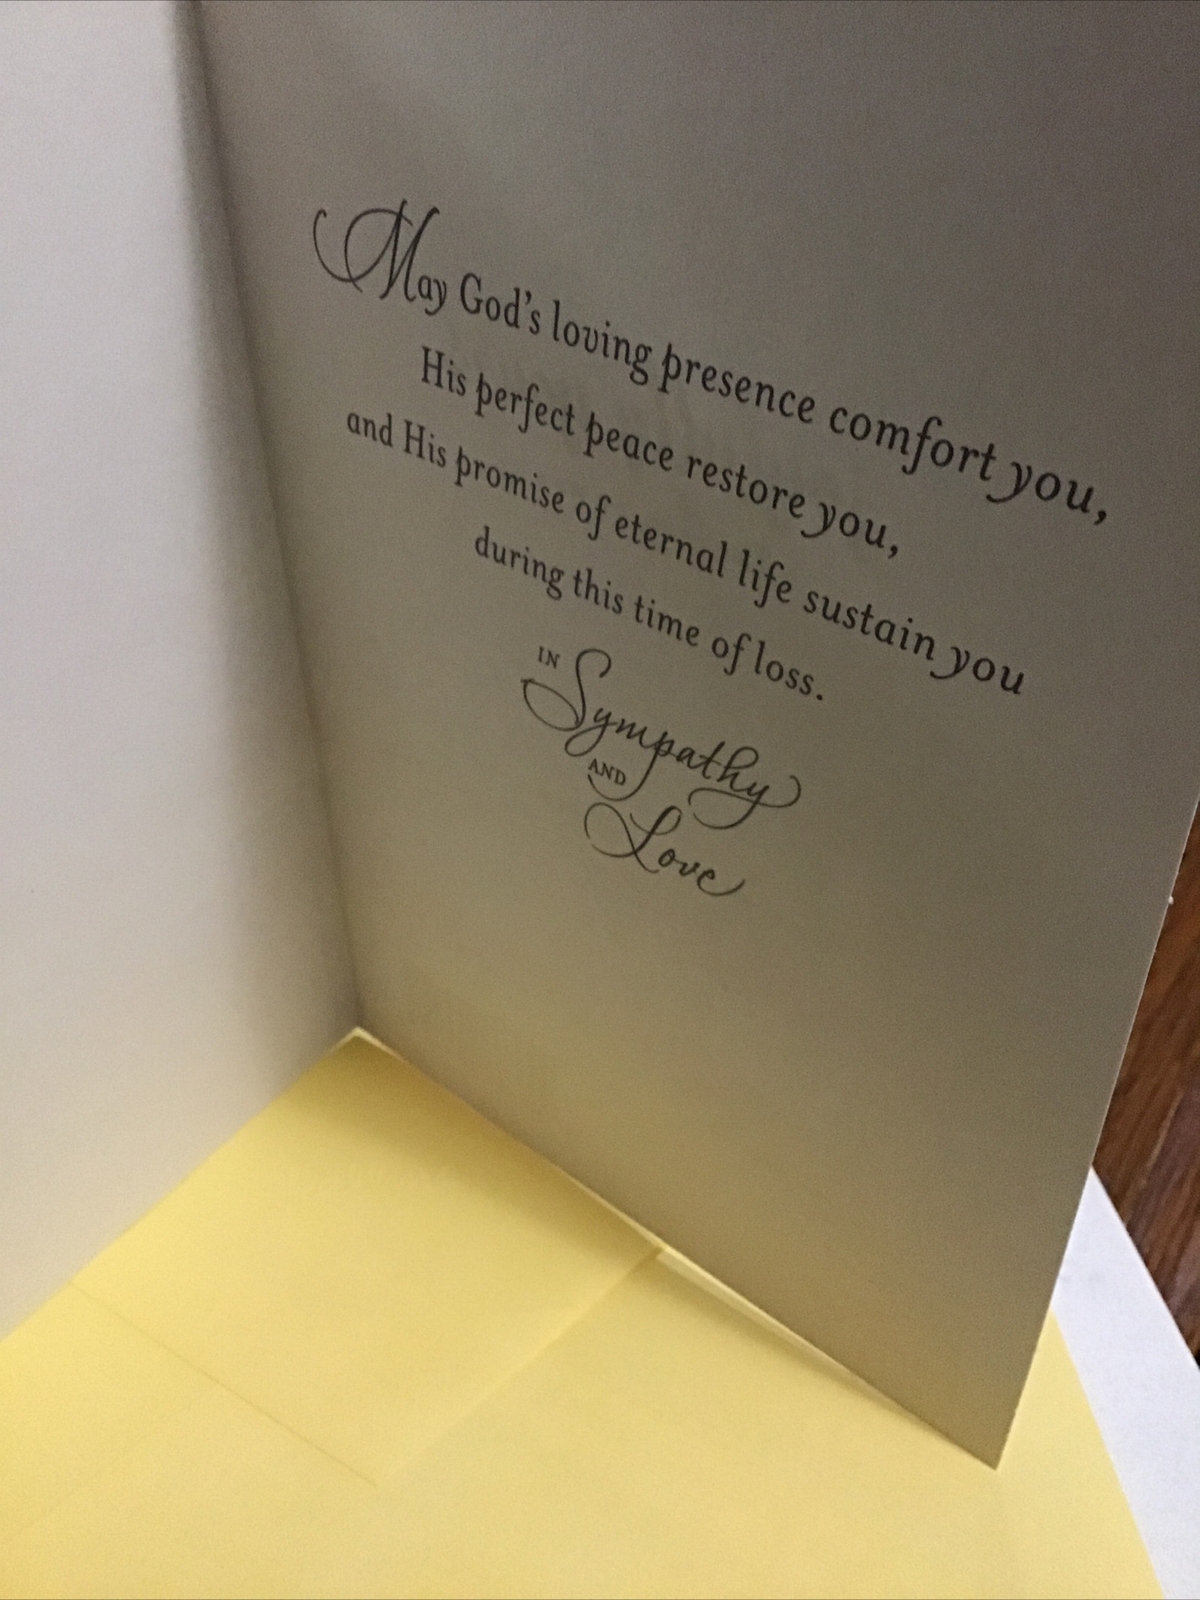 May God's loving presence comfort you,
His perfect peace restore you,
and His promise of eternal life sustain you
during this time of loss.
IN Sympathy
AND
Love